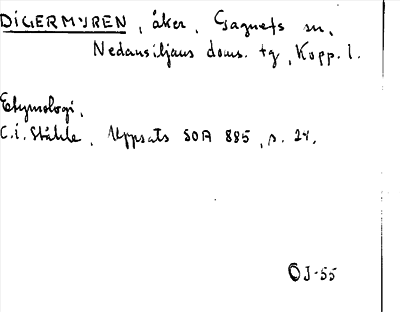 DIGERMYREN, åker, Gagnefs sn,
Nedansiljans doms. tg, Kopp. l.
Etymologi.
C.I. Ståhle, Uppsats SOA 885, s. 24.
OJ-55